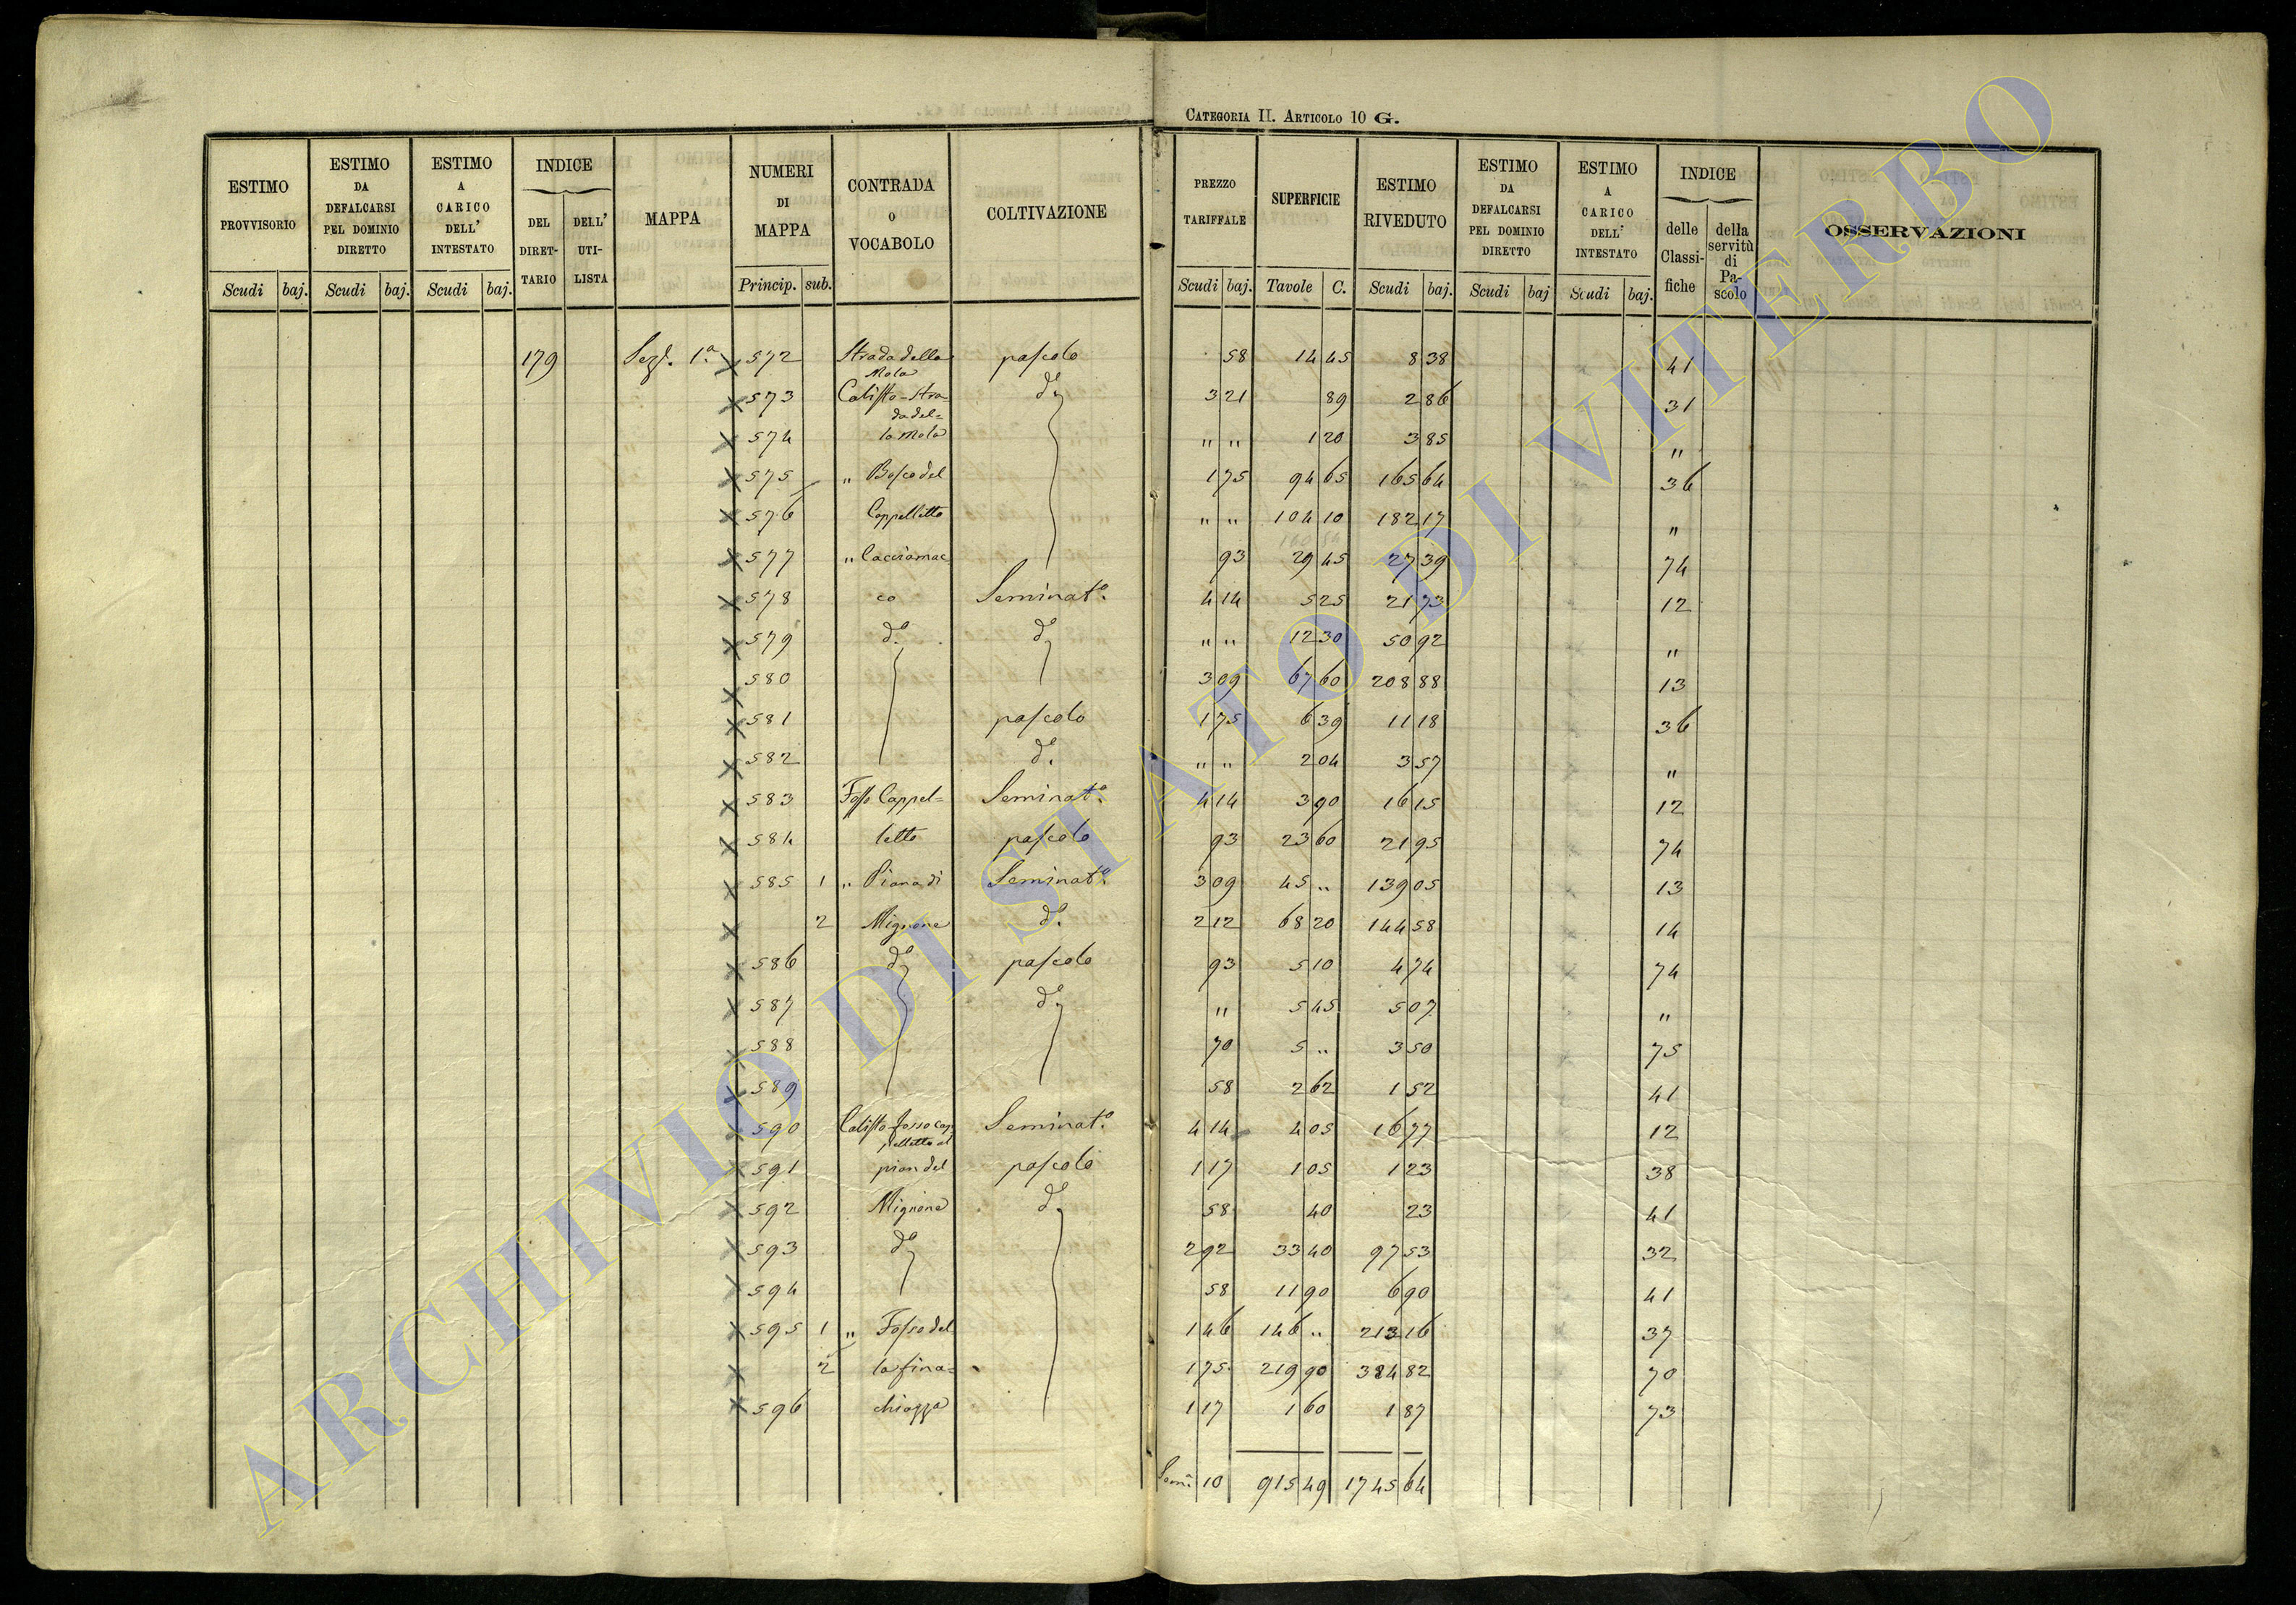 CATEGORIA II. ARTICOLO 10 G.
ESTIMO PROVVISORIO Scudi baj. | ESTIMO DA DEFALCARSI PEL DOMINIO DIRETTO Scudi baj. | ESTIMO A CARICO DELL' INTESTATO Scudi baj. | INDICE DEL DIRETTARIO DELL' UTILISTA | MAPPA | NUMERI DI MAPPA Princip. sub. | CONTRADA O VOCABOLO | COLTIVAZIONE | PREZZO TARIFFALE Scudi baj. | SUPERFICIE Tavole C. | ESTIMO RIVEDUTO Scudi baj. | ESTIMO DA DEFALCARSI PEL DOMINIO DIRETTO Scudi baj | ESTIMO A CARICO DELL' INTESTATO Scudi baj. | INDICE delle Classifiche della servitù di Pascolo | OSSERVAZIONI
179 Sez. 1a x 572 Strada della Mola pascolo 58 14 45 8 38 41
x 573 Calisto - Stra= da del= do 3 21 89 2 86 31
x 574 la Mola " " 1 20 3 85 "
x 575 " Bosco del 1 75 94 65 165 64 36
x 576 Cappelletto " " 104 10 182 17 "
x 577 " Cacciamar 93 29 45 27 39 74
x 578 co Seminato. 4 14 5 25 21 73 12
x 579 do. do " " 12 30 50 92 "
x 580 3 09 67 60 208 88 13
x 581 pascolo 1 75 6 39 11 18 36
x 582 do. " " 2 04 3 57 "
x 583 Fosso Cappel= Seminato. 4 14 3 90 16 15 12
x 584 letto pascolo 93 23 60 21 95 74
x 585 1 " Piana di Seminato. 3 09 45 " 139 05 13
x 2 Mignone do. 2 12 68 20 144 58 14
x 586 do pascolo 93 5 10 4 74 74
x 587 do " 5 45 5 07 "
x 588 70 5 " 3 50 75
x 589 58 2 62 1 52 41
x 590 Calisto fosso cap pelletto al Seminato. 4 14 4 05 16 77 12
x 591 pian del pascolo 1 17 1 05 1 23 38
x 592 Mignone do 58 40 23 41
x 593 do 2 92 33 40 97 53 32
x 594 58 11 90 6 90 41
x 595 1 " Fosso del 1 46 146 " 213 16 37
x 2 la fina= 1 75 219 90 384 82 70
x 596 chiozza 1 17 1 60 1 87 73
10 915 49 1745 64
ARCHIVIO DI STATO DI VITERBO